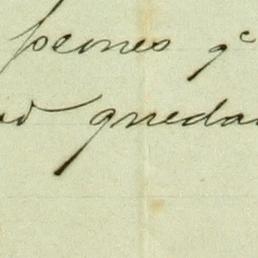 peones qe
quedar